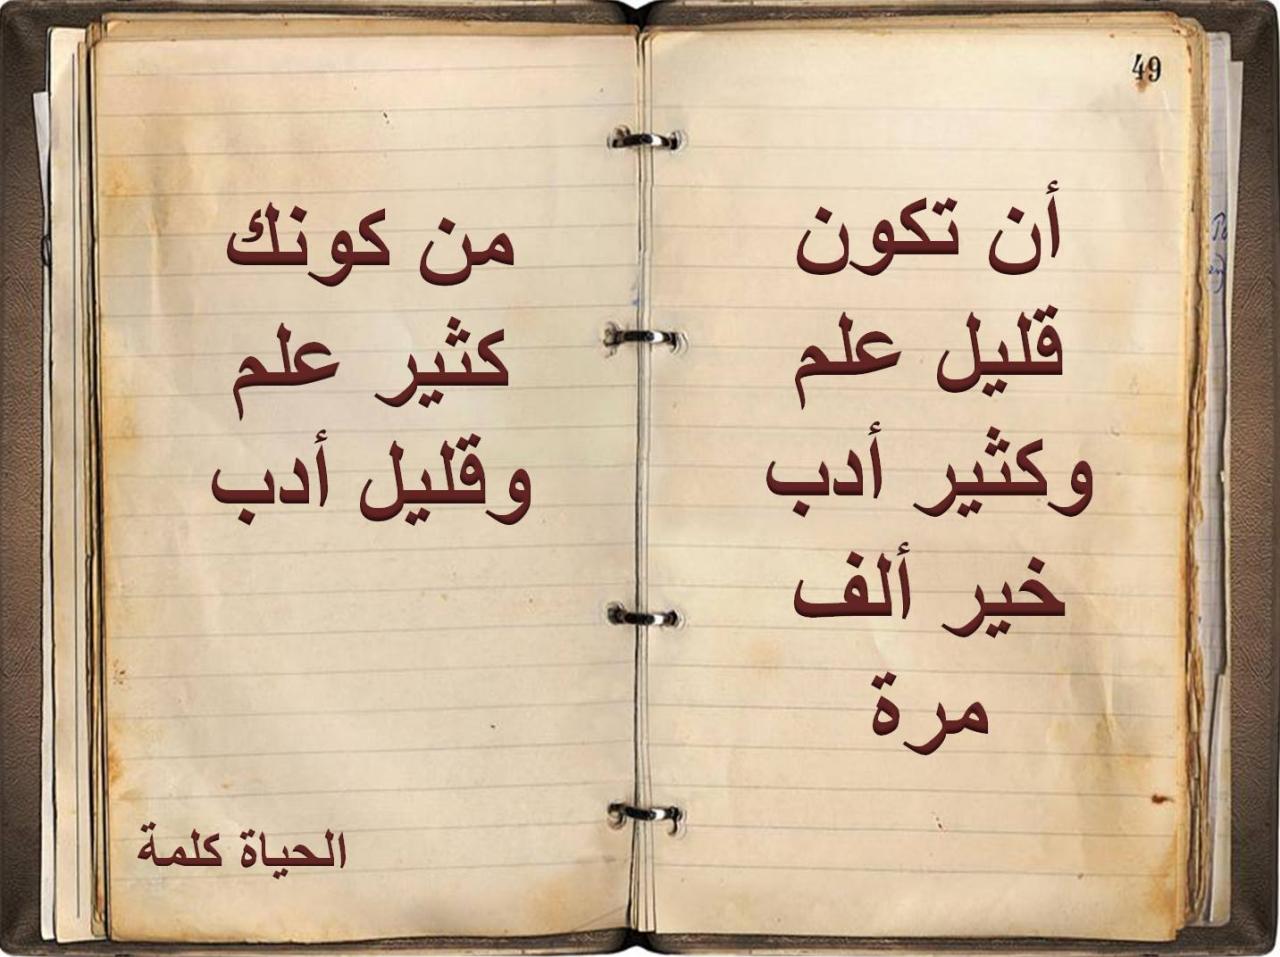 49
أن تكون
قليل علم
وكثير أدب
خير ألف
مرة
من كونك
كثير علم
وقليل أدب
الحياة كلمة